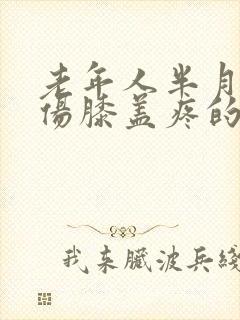 老年人半月
伤膝盖疼的
我来臓波兵綫